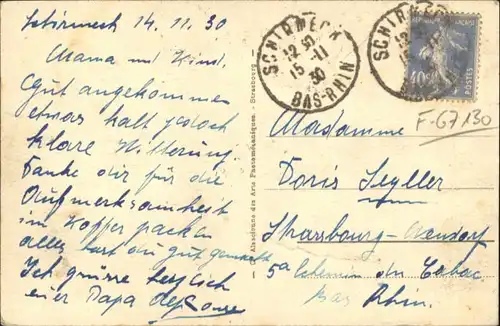 Schirmeck 14. 11. 30
Mama und Kind.
Gut angekommen
etwas kalt jedoch
klare Witterung.
Danke dir für die
Aufmerksamheit
im Koffer packen
alles hast du gut gemacht
Ich grüsse herzlich
euer Papa
SCHIRMECK
12 30
15-11
30
BAS-RHIN
SCHIRMECK
40c
POSTES
F-67130
Alsacienne des Arts Photomécaniques. - Strasbourg
Madamme
Doris Seyller
Strasbourg - Neudorf
5a Chemin du
Bas Rhin.